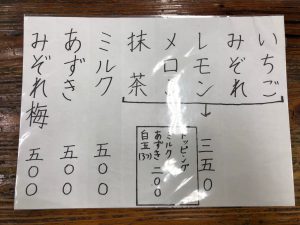 いちご
みぞれ
レモン
メロン
抹茶
三五〇
トッピング
ミルク
あずき
白玉(3つ)
二〇〇
ミルク 五〇〇
あずき 五〇〇
みぞれ梅 五〇〇